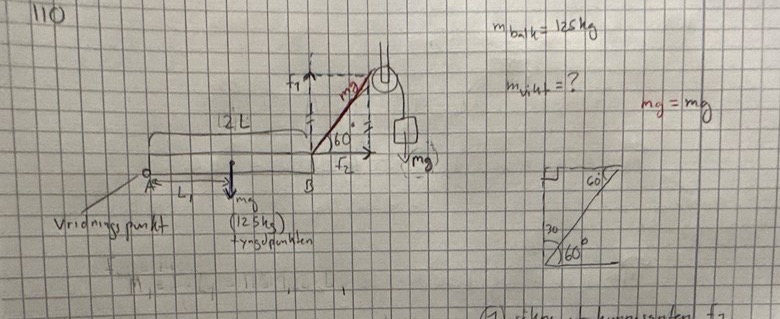 110
m balk = 125 kg
m vikt = ?
mg = mg
F₁
mg
2L
60°
F₂
mg
A
B
L₁
mg
(125kg)
tyngdpunkten
Vridningspunkt
60°
30
60°